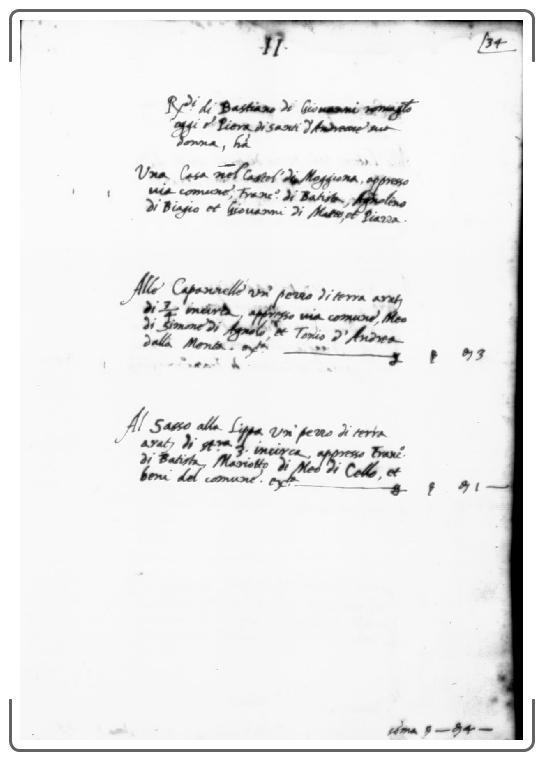 II
34
R.di di Bastiano di Giovanni
oggi è Piera di Santi d'Andrea sua
donna, hà
Una Casa nel Castel di Moggiona, appresso
via comune, Franc.o di Batista, Agnolino
di Biagio et Giovanni di Matteo, et Piazza.
Alle Capannelle un' pezzo di terra arat.
di 3/4 incirca, appresso via comune, Meo
di Simone di Agnolo, et Tonio d'Andrea
dalla Monta.
3
Al Sasso alla Lippa un' pezzo di terra
arat. di stara 3 incirca, appresso Franc.o
di Batista, Mariotto di Meo di Cello, et
beni del comune.
1 —
soma — 4 —